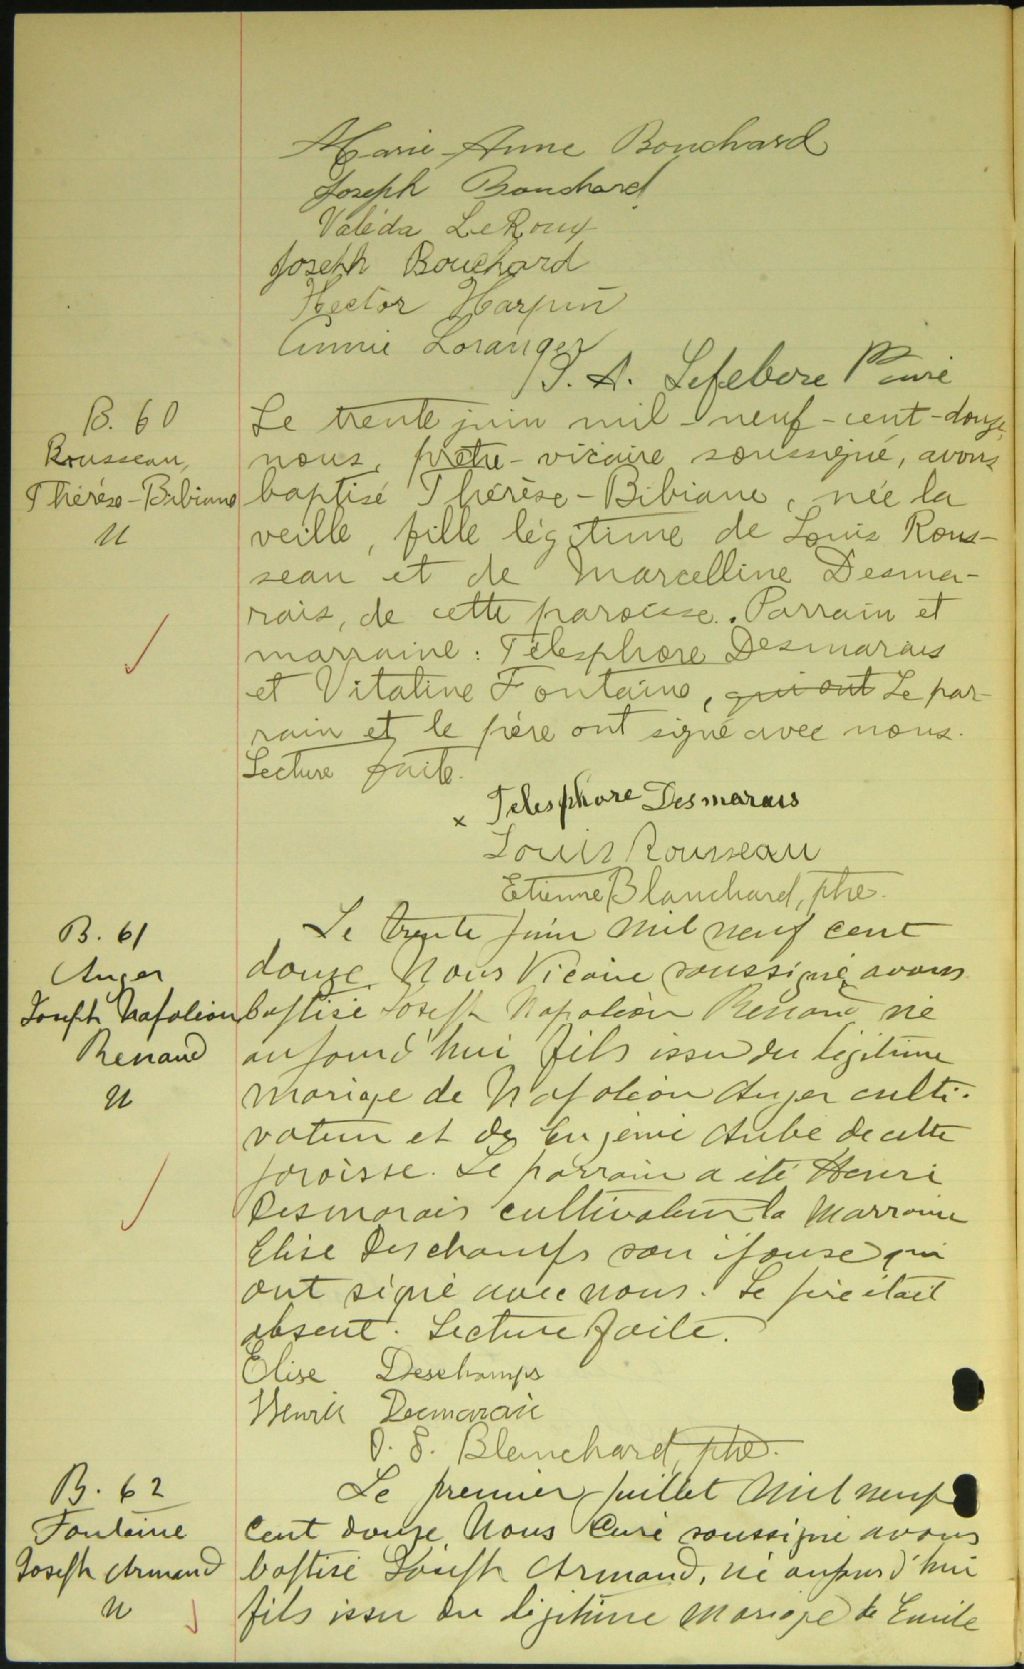 Marie-Anne Bouchard
Joseph Bouchard
Valéda LeRoux
Joseph Bouchard
Hector Harpin
Annie Loranger
J. A. Lefebvre Curé
B. 60
Rousseau,
Thérèse-Bibiane
U
Le trente juin mil-neuf-cent-douze,
nous, prêtre-vicaire soussigné, avons
baptisé Thérèse-Bibiane, née la
veille, fille légitime de Louis Rous-
seau et de Marcelline Desma-
rais, de cette paroisse. Parrain et
marraine: Télesphore Desmarais
et Vitaline Fontaine, qui ont Le par-
rain et le père ont signé avec nous.
Lecture faite.
x Telesphore Desmarais
Louis Rousseau
Etienne Blanchard, ptre.
B. 61
Auger
Joseph Napoléon
Renaud
U
Le trente juin mil neuf cent
douze Nous Vicaire soussigné avons
baptisé Joseph Napoléon Renaud né
aujourd'hui fils issu du légitime
mariage de Napoléon Auger culti-
vateur et de Eugénie Aubé de cette
paroisse. Le parrain a été Henri
Desmarais cultivateur la marraine
Elise Deschamps son épouse qui
ont signé avec nous. Le père était
absent. Lecture faite.
Elise Deschamps
Henri Desmarais
Blanchard, ptre.
B. 62
Fontaine
Joseph Armand
U
Le premier juillet mil neuf
cent douze Nous Curé soussigné avons
baptisé Joseph Armand, né aujourd'hui
fils issu du légitime mariage de Emile